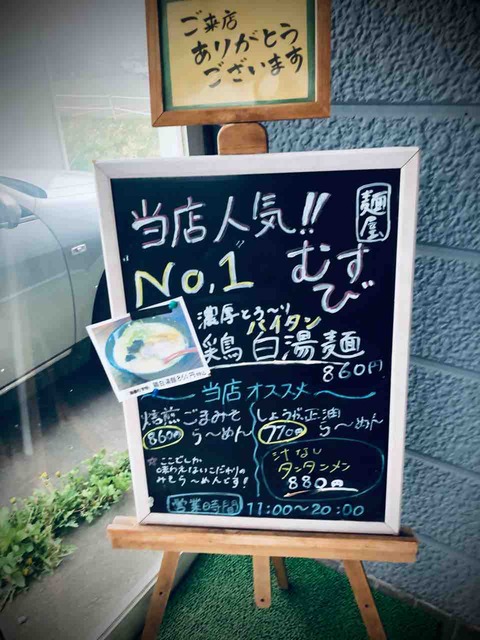 ご来店
ありがとう
ございます
麺屋
当店人気!!
"No,1"
むすび
濃厚とろ〜り
パイタン
鶏白湯麺
860円
当店オススメ
焙煎ごまみそ
860円 ら〜めん
しょうが正油
770円 ら〜めん
☆ここでしか
味わえないこだわりの
みそら〜めんです!
汁なし
タンタンメン
880円
営業時間 11:00〜20:00